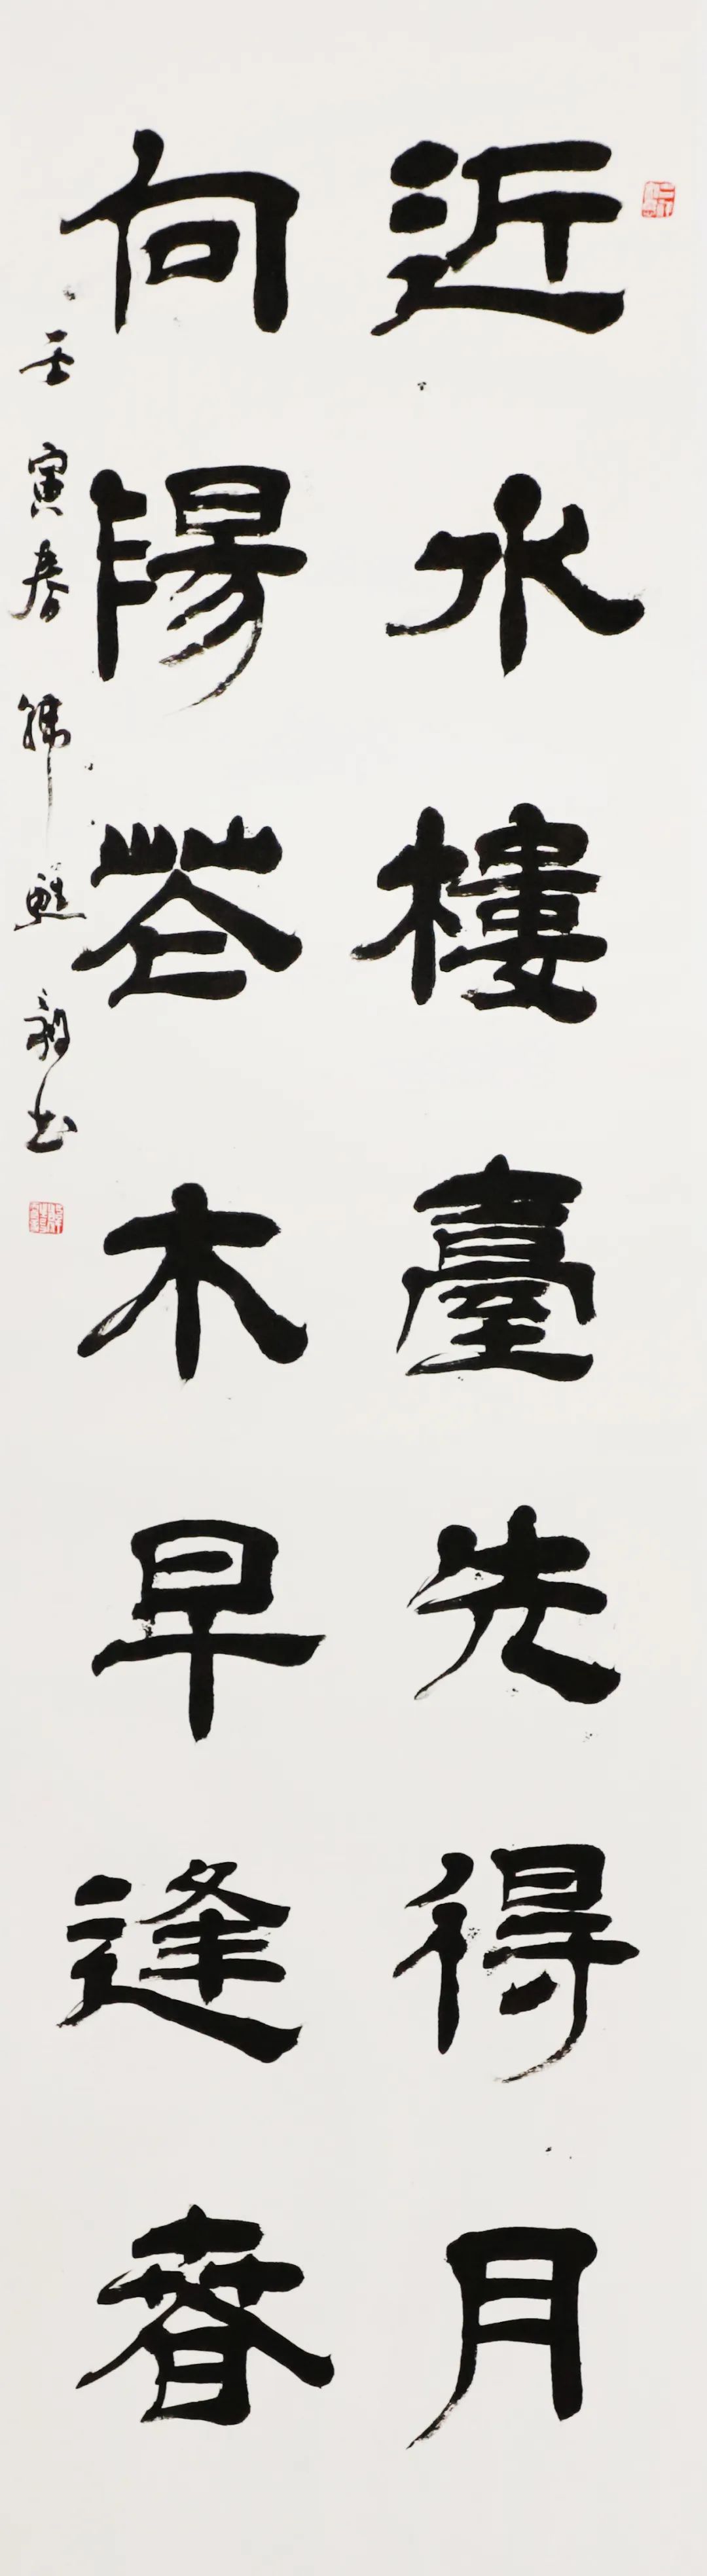 近水樓臺先得月
向陽花木早逢春
壬寅春 韩 毅书